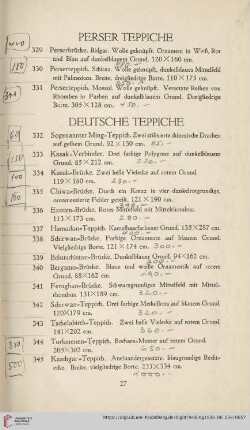 PERSER TEPPICHE
329 Perserbrücke. Bidgar. Wolle geknüpft. Ornament in Weiß, Rot
und Blau auf dunkelblauem Grund. 120×160 cm.
330 Perserteppich. Schiras. Wolle geknüpft, dunkelblaues Mittelfeld
mit Palmetten. Breite, dreigliedrige Borte. 110×175 cm.
331 Perserteppich. Mossul. Wolle geknüpft. Versetzte Reihen von
Rhomben in Farben auf dunkelblauem Grund. Dreigliedrige
Borte. 305×128 cm.
DEUTSCHE TEPPICHE
332 Sogenannter Ming-Teppich. Zwei stilisierte chinesische Drachen
auf gelbem Grund. 92×150 cm.
333 Kasak-Verbinder. Drei farbige Polygone auf dunkelblauem
Grund. 85×212 cm.
334 Kasak-Brücke. Zwei helle Vielecke auf rotem Grund.
119×180 cm.
335 Chiwa-Brücke. Durch ein Kreuz in vier dunkelrotgrundige,
ornamentierte Felder geteilt. 121×190 cm.
336 Brücke. Rotes Mittelfeld mit Mittelrhombus.
113×175 cm. 280.-
337 Hamadan-Teppich. Kamelhaarfarbener Grund. 135×287 cm.
338 Schirwan-Brücke. Farbige Ornamente auf blauem Grund.
Vielgliedrige Borte. 121×174 cm.
339 Belutschistan-Brücke. Dunkelblauer Grund. 94×162 cm.
340 Bergamo-Brücke. Blaue und weiße Ornamentik auf rotem
Grund. 88×162 cm.
341 Feraghan-Brücke. Schwarzgrundiges Mittelfeld mit Mittel-
rhombus. 131×189 cm. 320.-
342 Schirwan-Teppich. Drei farbige Medaillons auf blauem Grund.
120×179 cm.
343 Tschelaberth-Teppich. Zwei helle Vielecke auf rotem Grund.
141×202 cm.
344 Turkmenen-Teppich. Bochara-Muster auf rotem Grund.
205×302 cm. 650.-
345 Kaschgar-Teppich. Aneinandergesetzte, blaugrundige Recht-
ecke. Breite, vielgliedrige Borte. 233×334 cm.
27